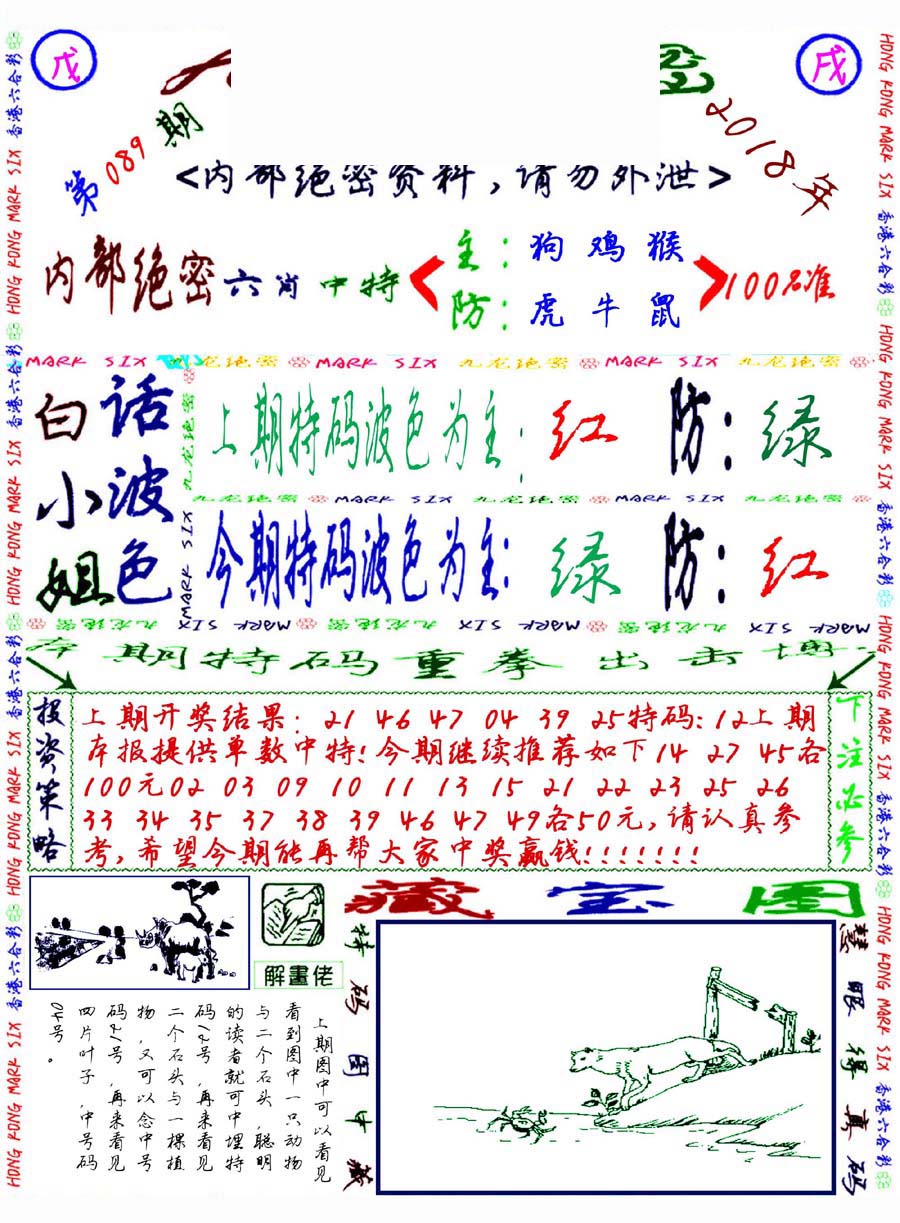 戊
戌
第089期
2018年
<内部绝密资料,请勿外泄>
内部绝密六肖中特
主:狗 鸡 猴
防:虎 牛 鼠
100%准
MARK SIX 九龙绝密 MARK SIX 九龙绝密 MARK SIX 九龙绝密
白话
小波
姐色
九龙绝密 MARK SIX
上期特码波色为主:红 防:绿
九龙绝密 MARK SIX 九龙绝密 MARK SIX 九龙绝密
今期特码波色为主:绿 防:红
MARK SIX 九龙绝密 MARK SIX 九龙绝密 MARK SIX 九龙绝密
本期特码重拳出击博
投资策略
上期开奖结果: 21 46 47 04 39 25特码:12上期
本报提供单数中特!今期继续推荐如下14 27 45各
100元02 03 09 10 11 13 15 21 22 23 25 26
33 34 35 37 38 39 46 47 49各50元,请认真参
考,希望今期能再帮大家中奖赢钱!!!!!!!
下注必参
藏宝图
解畫佬
上期图中可以看见
看到图中一只动物
与二个石头,聪明
的读者就可中埋特
码12号,再来看见
二个石头与一棵植
物,又可以念中号
码21号,再来看见
四片叶子,中号码
04号。
特码图中藏
慧眼得真码
HONG KONG MARK SIX 香港六合彩 HONG KONG MARK SIX 香港六合彩 HONG KONG MARK SIX 香港六合彩 HONG KONG MARK SIX 香港六合彩
HONG KONG MARK SIX 香港六合彩 HONG KONG MARK SIX 香港六合彩 HONG KONG MARK SIX 香港六合彩 HONG KONG MARK SIX 香港六合彩